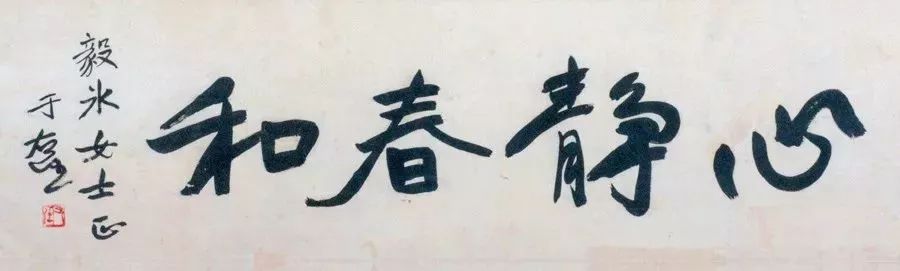 心静春和
毅冰女士正
于右任